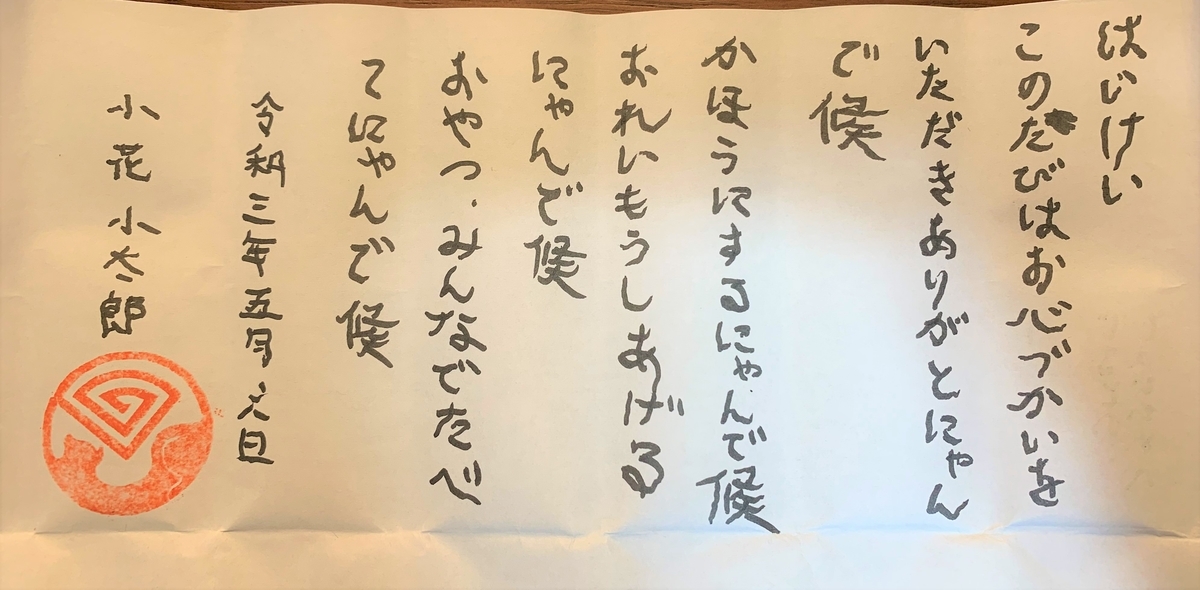 はいけい
このたびはお心づかいを
いただきありがとにゃん
で候
かほうにするにゃんで候
おれいもうしあげる
にゃんで候
おやつ、みんなでたべ
てにゃんで候
令和三年五月
小花 小太郎